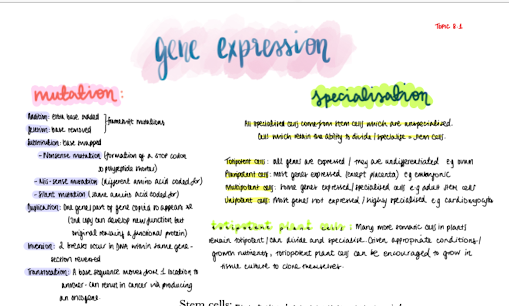 Topic 8.1
gene expression
mutation:
Addition: extra base added
Deletion: base removed
frameshift mutations
Substitution: base swapped
- Nonsense mutation (formation of a stop codon
so polypeptide shorter)
- Mis-sense mutation (different amino acid coded for)
- Silent mutation (same amino acid coded for)
Duplication: One gene/part of gene copied to appear x2
(2nd copy can develop new function but
original remains a functional protein)
Inversion: 2 breaks occur in DNA within same gene -
section reversed
Translocation: A base sequence moves from 1 location to
another - can result in cancer via producing
an oncogene
specialisation
All specialised cells come from stem cells which are unspecialised.
Cells which retain the ability to divide/specialise = stem cells.
Totipotent cells: all genes are expressed / they are undifferentiated eg ovum
Pluripotent cells: most genes expressed (except placenta) eg embryonic
Multipotent cells: some genes expressed/specialised cells e.g adult stem cells
Unipotent cells: most genes not expressed / highly specialised eg cardiomyocytes
totipotent plant cells: Many more somatic cells in plants
remain totipotent/can divide and specialise. Given appropriate conditions/
growth nutrients, totipotent plant cells can be encouraged to grow in
tissue culture to clone themselves.
Stem cells: